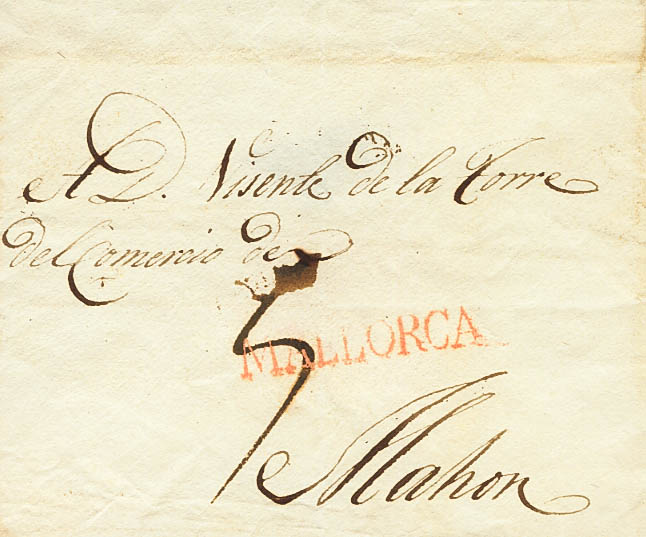 A D. Visente de la Torre
del Comercio de
5
MALLORCA
Mahon